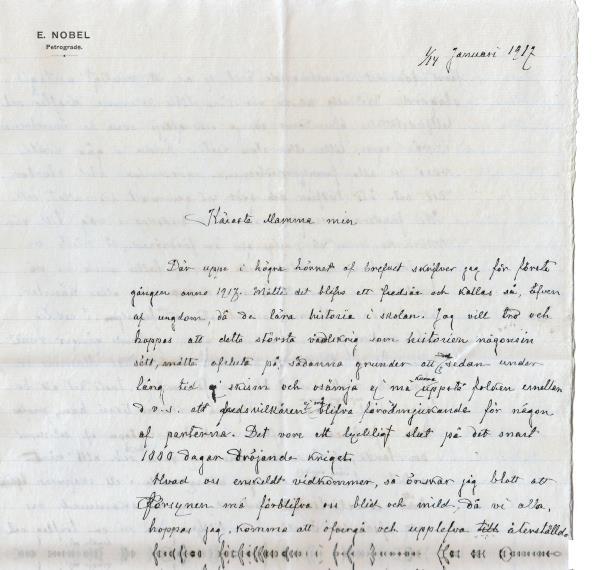 E. NOBEL
Petrograde.
1/14 Januari 1917
Käraste Mamma min
Där uppe i högra hörnet af brefvet skrifver jag för första
gången anno 1917. Måtte det blifva ett fredsår och kallas så, äfven
af ungdom, då de lära historia i skolan. Jag vill tro och
hoppas att detta största världskrig som historien någonsin
sett, måtte afsluta på sådana grunder att sedan under
lång tid ej skism och osämja ej må kunna uppstå folken emellan
d.v.s. att fredsvilkåren ej må blifva förödmjukande för någon
af parterna. Det vore ett lyckligt slut på det snart
1000 dagar dröjande kriget.
Hvad oss enskeldt vidkommer, så önskar jag blott att
Försynen må förblifva oss blid och mild, då vi alla,
hoppas jag, komma att öfvergå och upplefva återställda